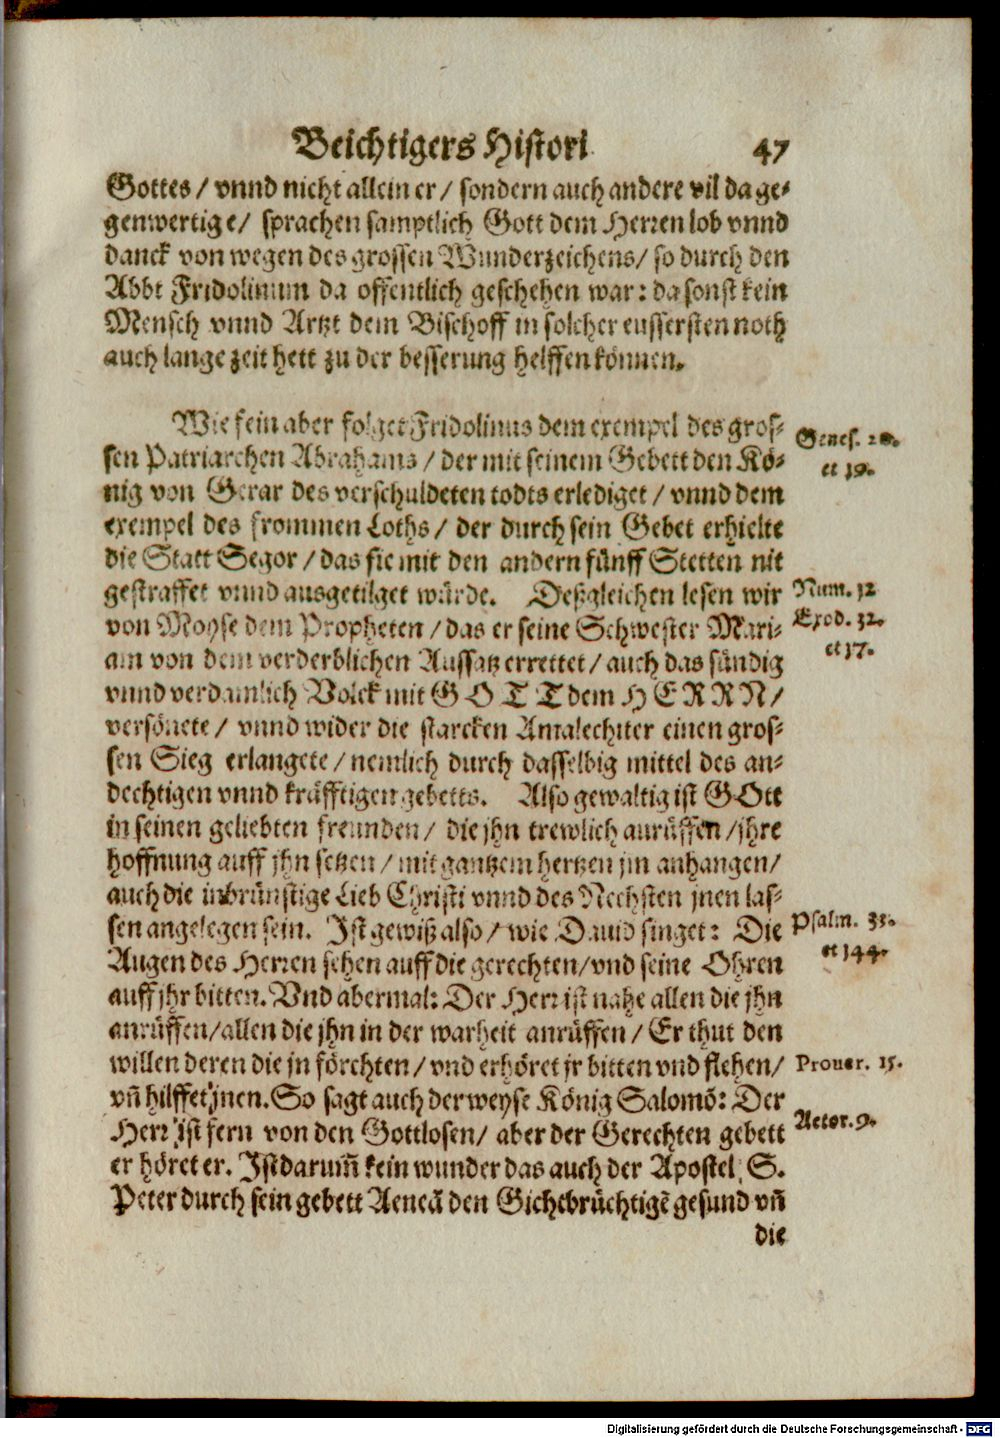 Beichtigers Histori 47
Gottes / vnnd nicht allein er / sondern auch andere vil da ge-
genwertige / sprachen samptlich Gott dem Herren lob vnnd
danck von wegen des grossen Wunderzeichens / so durch den
Abbt Fridolinum da offentlich geschehen war: da sonst kein
Mensch vnnd Artzt dem Bischoff in solcher eussersten noth
auch lange zeit hett zu der besserung helffen können.
Wie fein aber folget Fridolinus dem exempel des gros-
sen Patriarchen Abrahams / der mit seinem Gebett den Kö-
nig von Gerar des verschuldeten todts erlediget / vnnd dem
exempel des frommen Loths / der durch sein Gebet erhielte
die Statt Segor / das sie mit den andern fünff Stetten nit
gestraffet vnnd ausgetilget würde. Deßgleichen lesen wir
von Moyse dem Propheten / das er seine Schwester Mari-
am von dem verderblichen Aussatz errettet / auch das sündig
vnnd verdamlich Volck mit GOTT dem HERRN /
versönete / vnnd wider die starcken Amalechiter einen gros-
sen Sieg erlangete / nemlich durch dasselbig mittel des an-
dechtigen vnnd kräfftigen gebetts. Also gewaltig ist GOtt
in seinen geliebten freunden / die jhn trewlich anrüffen / jhre
hoffnung auff jhn setzen / mit gantzem hertzen jm anhangen /
auch die inbrünstige Lieb Christi vnnd des Nechsten jnen las-
sen angelegen sein. Ist gewiß also / wie Dauid singet: Die
Augen des Herren sehen auff die gerechten / vnd seine Ohren
auff jhr bitten. Vnd abermal: Der Herr ist nahe allen die jhn
anrüffen / allen die jhn in der warheit anrüffen / Er thut den
willen deren die jn förchten / vnd erhöret jr bitten vnd flehen /
vñ hilffet jnen. So sagt auch der weyse König Salomō: Der
Herr ist fern von den Gottlosen / aber der Gerechten gebett
er höret er. Ist darum̃ kein wunder das auch der Apostel S.
Peter durch sein gebett Aeneā den Gichtbrüchtigē gesund vñ
die
Genes. 20.
et 19.
Num. 12
Exod. 32.
et 17.
Psalm. 33.
et 144.
Prouer. 15.
Actor. 9.
Digitalisierung gefördert durch die Deutsche Forschungsgemeinschaft - DFG